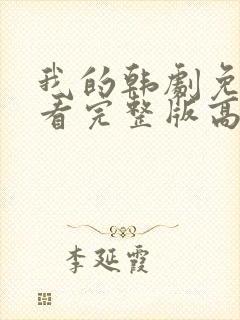 我的韩剧免
看完整版高
李延霞